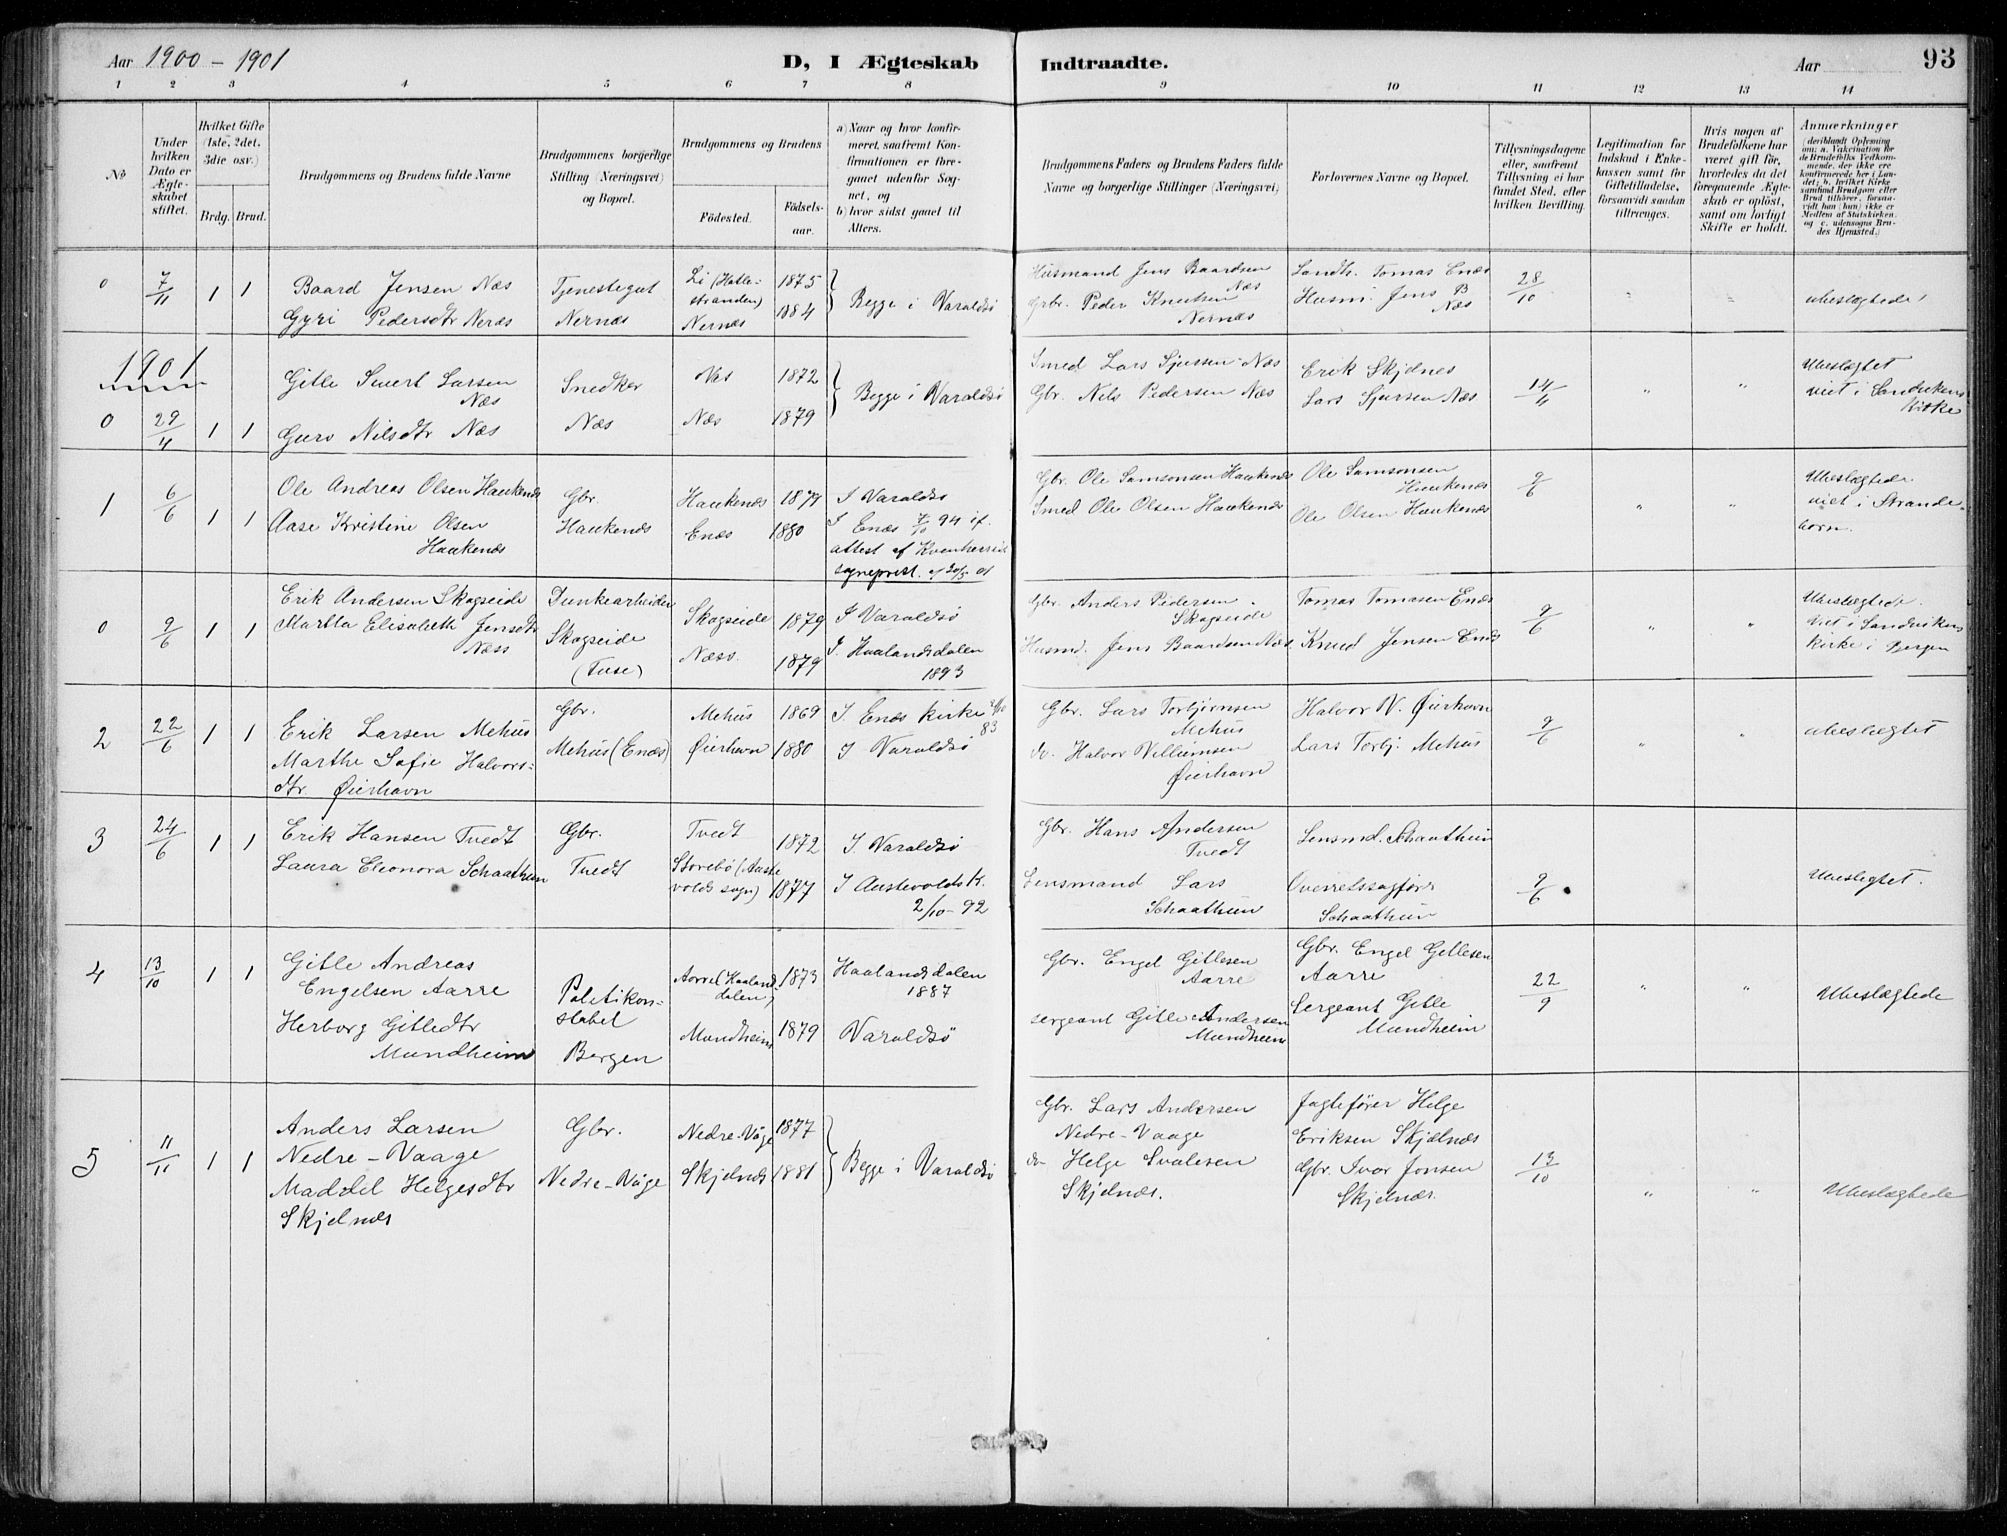 Aar 1900 - 1901
D, I Ægteskab Indtraadte.
Aar
93
1 2 3 4 5 6 7 8 9 10 11 12 13 14
No
Under hvilken Dato er Ægteskabet stiftet.
Hvilket Gifte (1ste, 2det, 3die osv.)
Brdg. Brud.
Brudgommens og Brudens fulde Navne
Brudgommens borgerlige Stilling (Næringsvei) og Bopæl.
Brudgommens og Brudens
Fødested.
Fødsels-aar.
a) Naar og hvor konfirmeret, saafremt Konfirmationen er foregaaet udenfor Sognet, og
b) hvor sidst gaaet til Alters.
Brudgommens Faders og Brudens Faders fulde Navne og borgerlige Stillinger (Næringsvei)
Forlovernes Navne og Bopæl.
Tillysningsdagene eller, saafremt Tillysning ei har fundet Sted, efter hvilken Bevilling.
Legitimation for Indskud i Enkekassen samt for Giftetilladelse, forsaavidt saadan tiltrænges.
Hvis nogen af Brudefolkene har været gift før, hvorledes da det foregaaende Ægteskab er opløst, samt om lovligt Skifte er holdt.
Anmærkninger (deriblandt Oplysning om: a. Vakcination for de Brudefolks Vedkommende, der ikke ere konfirmerede her i Landet; b. hvilket Kirkesamfund Brudgom eller Brud tilhører, forsaavidt han (hun) ikke er Medlem af Statskirken, og c. udensogns Brudes Hjemsted.)
0 7/11 1 1
Baard Jensen Næs
Gyri Pedersdtr Neræs
Tjenestegut
Nernæs
Li (Hatlestranden)
Nernæs
1875
1884
Begge i Varaldsø
Husmand Jens Baardsen Næs
Gbr. Peder Knutsen Nernæs
Landh. Tomas Enæs
Husm. Jens B Næs
28/10 " "
ubeslægtede
1901
0 29/4 1 1
Gitle Sivert Larsen Næs
Guro Nilsdtr Næs
Snedker
Næs
Næs
Næs
1872
1879
Begge i Varaldsø
Smed Lars Sjursen Næs
Gbr. Nils Pedersen Næs
Erik Skjelnes
Lars Sjursen Næs
14/4 " "
Ubeslægtet
viet i Sandvikens Kirke
1 6/6 1 1
Ole Andreas Olsen Haukenæs
Aase Kristine Olsen Haukenæs
Gbr.
Haukenæs
Haukenæs
Enæs
1879
1880
I Varaldsø
I Enæs 7/10 94 if.
attest af Kvinherred
sogneprest. af 20/5 01
Gbr. Ole Samsonsen Haukenæs
Smed Ole Olsen Haukenæs
Ole Samsonsen Haukenæs
Ole Olsen Haukenæs
9/6 " "
Ubeslægtede
viet i Strandebarm.
0 9/6 1 1
Erik Andersen Skogseide
Martha Elisabeth Jensdtr Næss
Skogseide
(Fuse)
Skogseide
Næss.
1879
1879
I Varaldsø
I. Haalandsdalen
1893
Gbr. Anders Pedersen Skogseide
Husmd. Jens Baardsen Næs
Tomas Tomasen Enæs
Knud Jensen Enæs
9/6 " "
Ubeslægtede.
Viet i Sandvikens
kirke i Bergen
2 22/6 1 1
Erik Larsen Mehus
Marthe Sofie Halvorsdtr. Øierhavn
Gbr.
Mehus (Enæs)
Mehus
Øierhavn
1869
1880
I. Enæs kirke 83
I Varaldsø
Gbr. Lars Torbjørnsen Mehus
do. Halvor Villumsen Øierhavn
Halvor V. Øierhavn
Lars Torbj. Mehus
9/6 " "
ubeslægtet
3 24/6 1 1
Erik Hansen Tvedt
Laura Eleonora Schaathun
Gbr.
Tvedt
Tvedt
Storebø (Austevolds sogn)
1872
1877
I. Varaldsø
I Austevolds K.
2/10-92
Gbr. Hans Andersen Tvedt
Lensmand Lars Schaathun
Lensmd. Schaathun
Overretssagfører Schaathun
9/6
Ubeslegtet.
4 13/10 1 1
Gitle Andreas
Engelsen Aarre
Herborg Gitledtr
Mundheim
Politikonstabel
Bergen
Aarre (Haalandsdalen)
Mundheim
1873
1879
Haalandsdalen
1887
Varaldsø
Gbr. Engel Gitlesen
Aarre
Sergeant Gitle Andersen
Mundheim
Gbr. Engel Gitlesen
Aarre
Sergeant Gitle
Mundheim
22/9 " "
Ubeslægtede
5 11/11 1 1
Anders Larsen
Nedre-Vaage
Maddel Helgesdtr
Skjelnæs
Gbr.
Nedre-Våge
Nedre-Våge
Skjelnæs
1877
1881
Begge i Varaldsø
Gbr. Lars Andersen
Nedre-Vaage
do Helge Svalesen
Skjelnæs.
Jagtefører Helge
Eriksen Skjælnæs
Gbr. Ivar Jonsen
Skjelnæs.
13/10 " "
Ubeslægtede